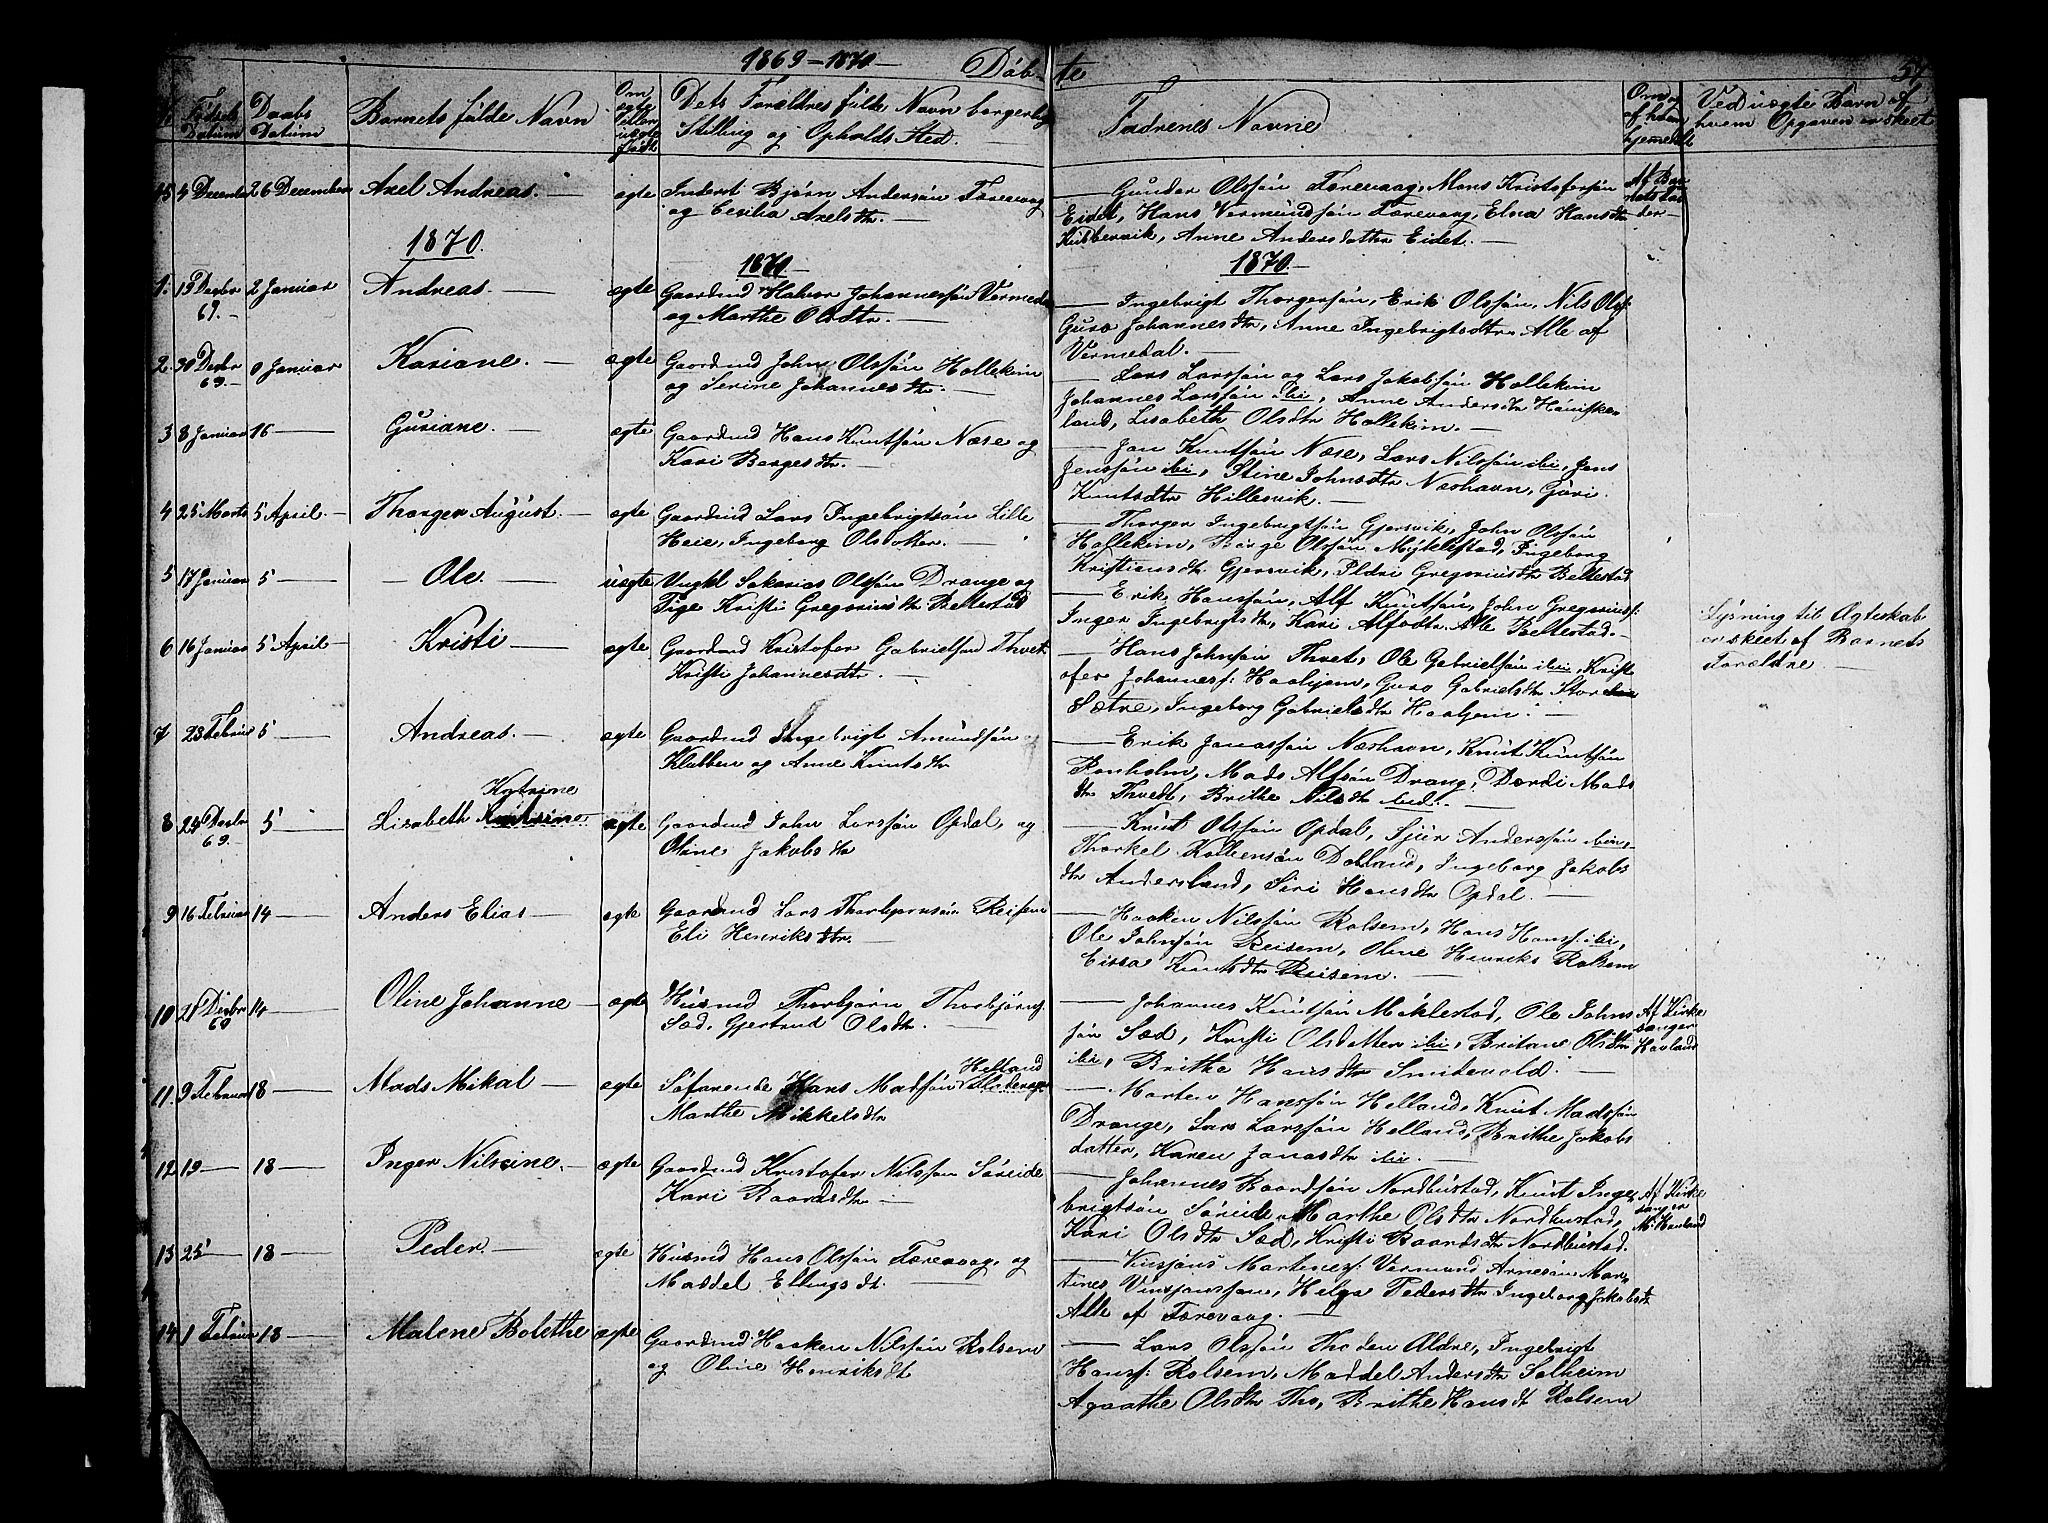 1869 – 1870 Döb-te
Födsels Datum
Daabs Datum
Barnets fulde Navn
Om ægte eller uægte födt
Dets Forældres fulde Navn borgerlig Stilling og Opholds Sted.
Fadrenes Navne
Om og af hvem hjemedöbt
Ved uægte Barn af hvem Opgaven er skeet
4 December 26 December Axel Andreas. ægte Inderst Björn Andersön Færevaag
og Cecilia Axelsdtr.
Gunder Olssön Færevaag, Mons Kristofersön
Eidet, Hans Vermundsön Færevaag, Elna Hansdtr
Kubbervik, Anne Andersdatter Eidet.
1870. 1870 1870.
1. 13 Desbr 69. 2 Januar Andreas. ægte Gaardmd Halvor Johannessön Vermedal
og Marthe Olsdtr.
Ingebrigt Thorgersön, Erik Olssön, Nils Olss:
Guro Johannesdtr, Anne Ingebrigtsdtr Alle af
Vermedal.
2. 30 Desbr 69 Januar Kasiane. ægte Gaardmd John Olssön Hollekim
og Serine Johannesdtr.
Lars Larssön og Lars Jakobsön Hollekim
Johannes Larssön ibi, Anne Andersdtr
land, Lisabeth Olsdtr Hollekim.
3 8 Januar 16 Guriane. ægte Gaardmd Hans Knutsön Næse og
Kari Borgesdtr.
Jan Knutsön Næse, Lars Nilssön ibi, Jens
Jenssön ibi, Stine Johnsdtr Næshavn, Guri
Knutsdtr Hillesvik.
4 25 Marts 5 April. Thorger August. ægte Gaardmd Lars Ingebrigtsön Lille
Heie, Ingeborg Olsdatter.
Thorger Ingebrigtsön Gjersvik, John Olssön
Hollekim, Börge Olssön Myklestad, Ingeborg
Kristiansdtr Gjersvik, Eldri Gregoriusdtr Beltestad
5 17 Januar 5 Ole. uægte Ungkl Sakarias Olssön Drange og
Pige Kristi Gregoriusdtr Beltestad
Erik Hanssön, Alf Knutsön, John Gregoriuss:
Inger Ingebrigtsdtr, Kari Alfsdtr. Alle Beltestad.
Lysning til Ægteskab
er skeet af Barnets
Forældre
6 16 Januar 5 April Kristi ægte Gaardmd Kristofer Gabrielssen Thvet
Kristi Johannesdtr.
Hans Johnsön Thvet, Ole Gabrielsön ibi, Krist
ofer Johanness: Haaljem, Guro Gabrielsdtr Store
Sætre, Ingeborg Gabrielsdtr Haaljem.
7 23 Februar 5 Andreas. ægte Gaardmd Ingebrigt Amundsön
Klubben og Anne Knutsdtr
Erik Janassön Næshavn, Knut Knutsön
Ronholm, Mads Alfsön Drang, Dordi Mads
dtr Thvedt, Brithe Nilsdtr ibid.
8 24 Desbr 69. 5 Lizabeth Katrine ægte Gaardmd John Larssön Opdal, og
Oline Jakobsdtr
Knut Olssön Opdal, Sjur Anderssön ibi,
Thorkel Kolbensön Dalland, Ingeborg Jakobs
dtr Andersland, Siri Hansdtr Opdal.
9 16 Februar 14 Anders Elias ægte Gaardmd Lars Thorbjörnsön Reisem
Eli Henriksdtr.
Haaken Nilssön Rolsem, Hans Hanss: ibi,
Ole Johnsön Reisem, Oline Henriks Rolsem
Cissa Knutsdtr Reisem.
10 21 Desbr 69 14 Oline Johanne ægte Husmd Thorbjörn Thorbjörns:
Sæd, Gjertrud Olsdtr.
Johannes Knutsön Möklestad, Ole Johns
sön Sæd, Kristi Olsdatter ibi, Britane Olsdtr
ibi, Brithe Hansdtr Smidevold.
Af Kirke
sanger
Havland
11. 9 Februar 18 Mads Mikal ægte Söfarende Hans Madsön Helland
Marthe Mikkelsdtr
Morten Hanssön Helland, Knut Madssön
Drange, Lars Larssön Helland, Brithe Jakobs
datter, Karen Janasdtr ibi.
12 19 18 Inger Nilseine. ægte Gaardmd Kristofer Nilssön Söreide
Kari Baardsdtr
Johannes Baardsön Nordbustad, Knut Inge
brigtsön Söreide, Marthe Olsdtr Nordbustad,
Kari Olsdtr Sæd, Kristi Baardsdtr Nordbustad.
Af Kirke
sanger
M. Havland
13 25 18 Peder. ægte Husmd Hans Olssön Færevaag, og
Maddel Ellingsdt.
Vinsjans Martiness: Vermund Arnesön Mar-
tines Vinsjanssön, Helga Pedersdtr Ingeborg Jakobsdtr
Alle af Færevaag.
14 1 Februar 18 Malene Bolethe ægte Gaardmd Haaken Nilssön Rolsem
og Oline Henriksdt
Lars Olssön Tho den Ældre, Ingebrigt
Hanss: Rolsem, Maddel Andersdtr Solheim
Agaathe Olsdtr Tho, Brithe Hansdt Rolsem